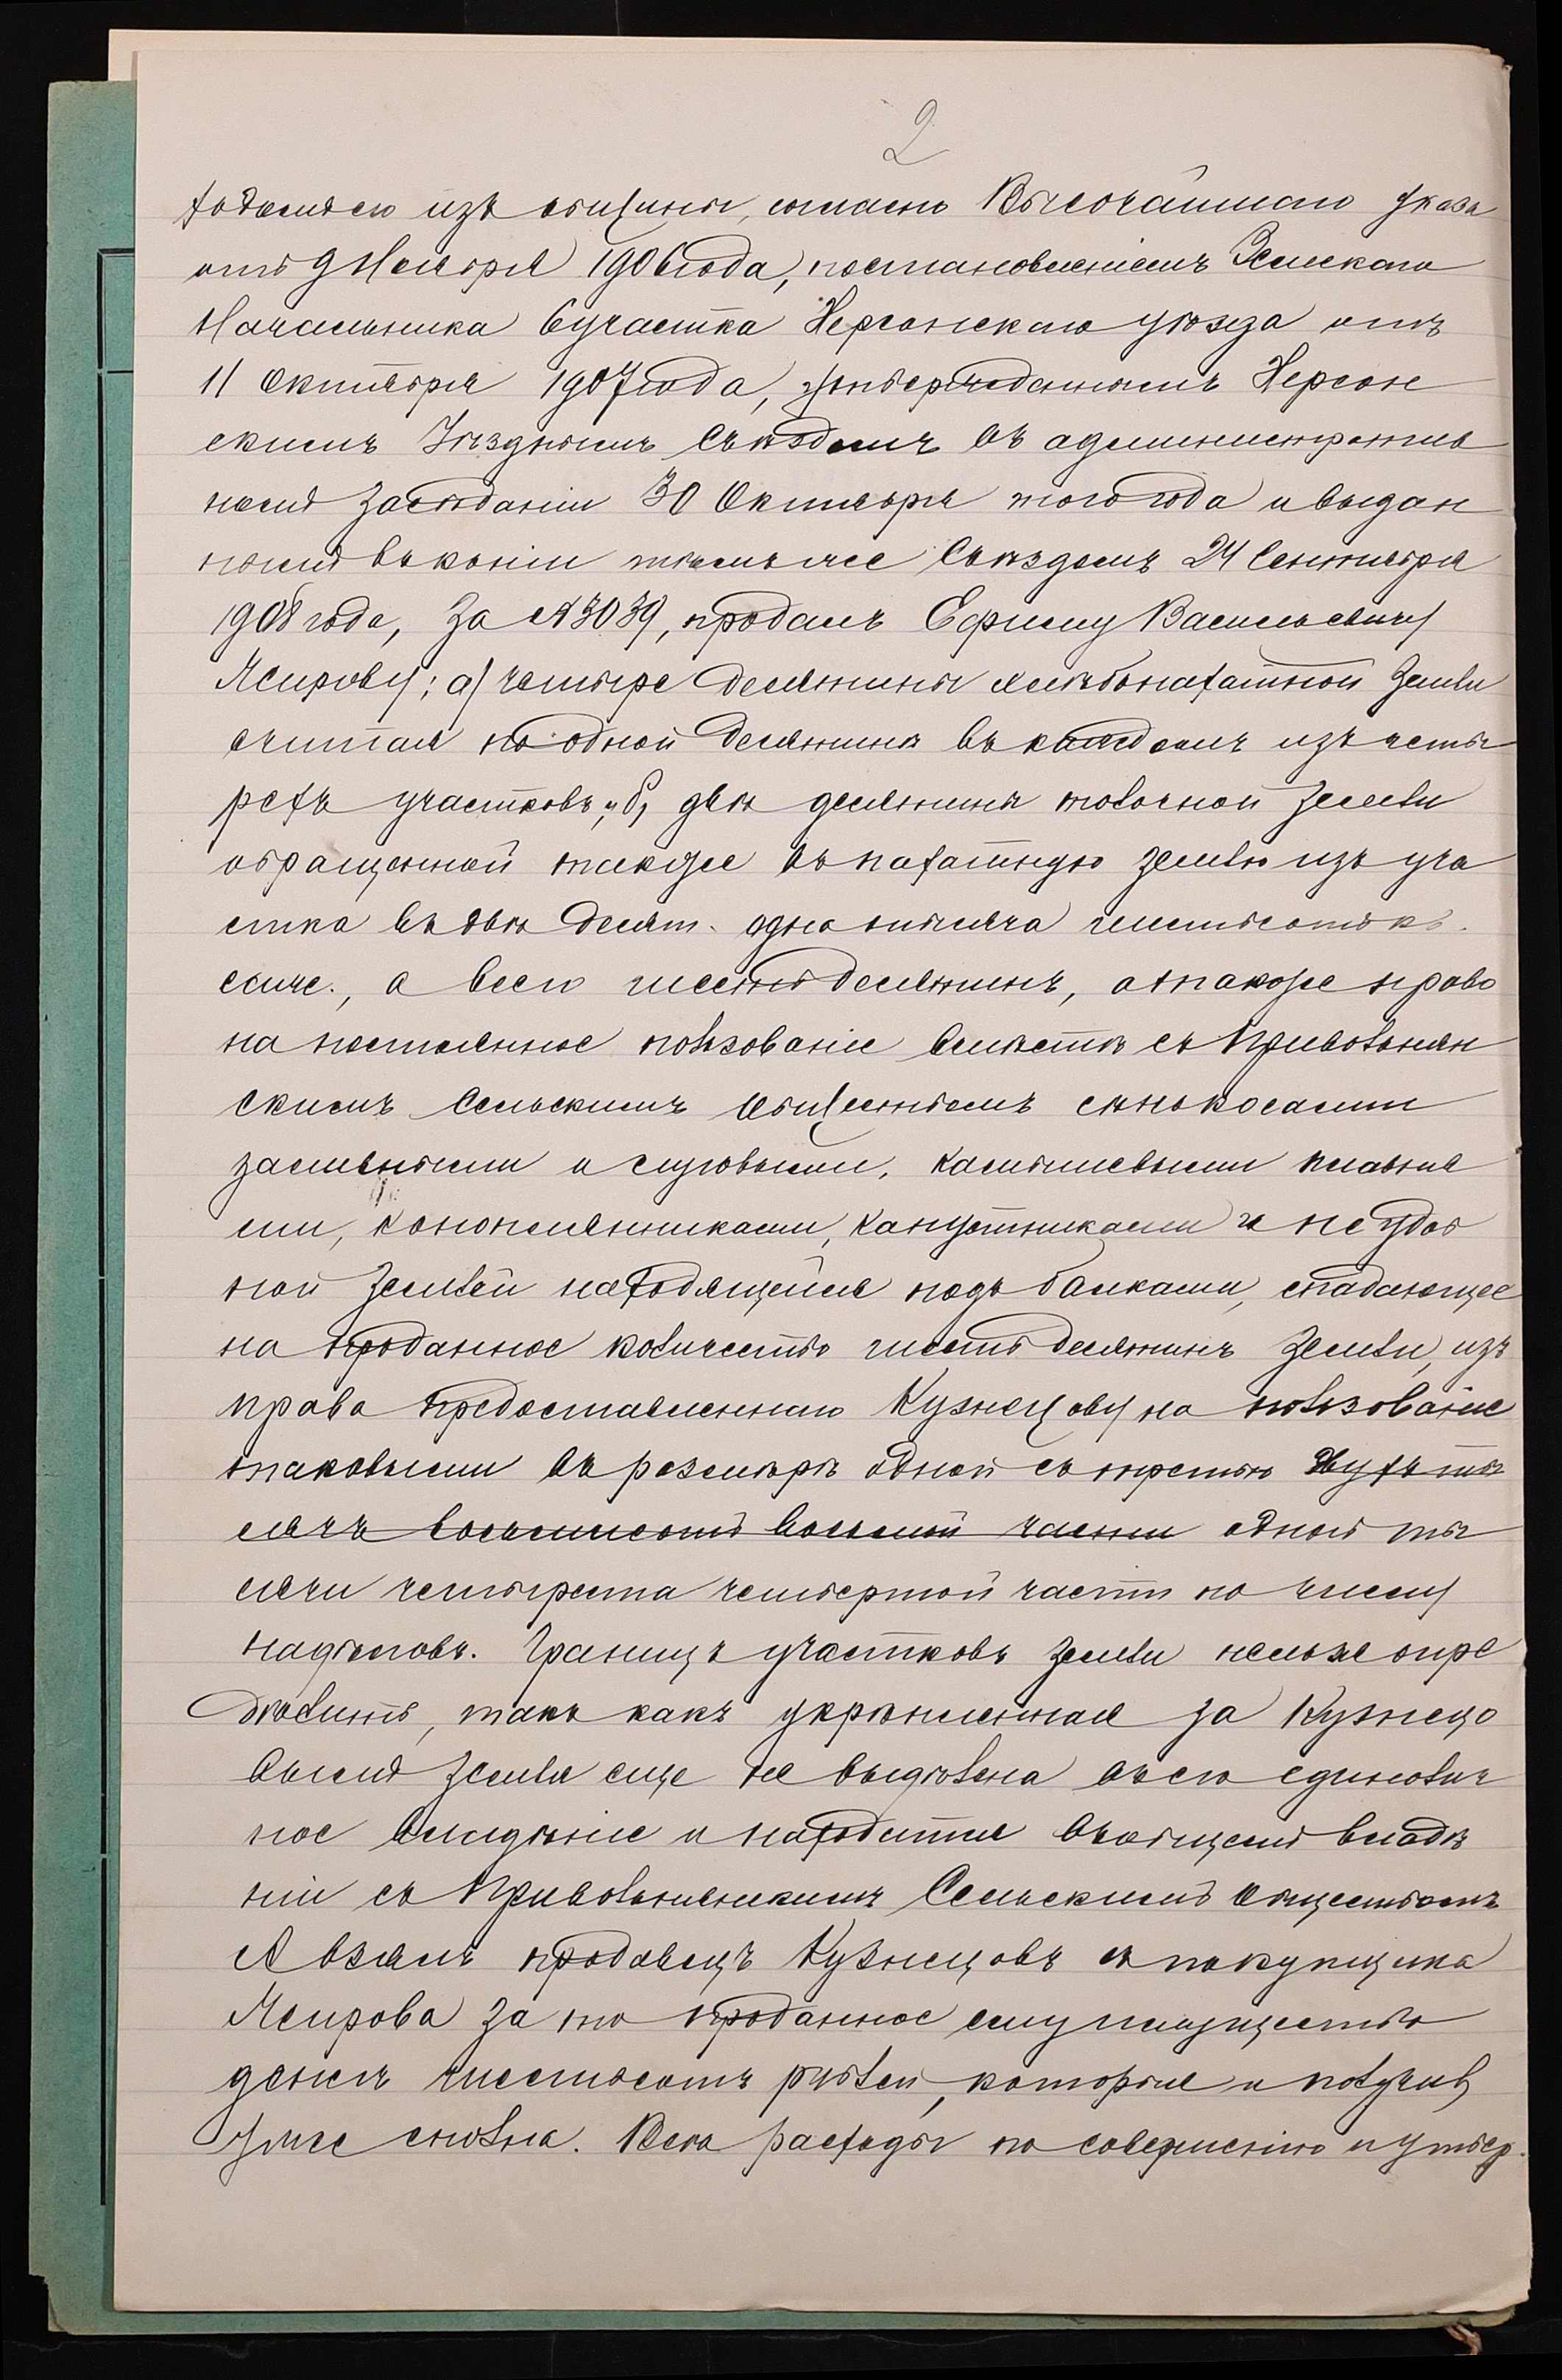 2
ходомъ его изъ общины, согласно Высочайшаго указа
отъ 9 Ноября 1906 года, постановленіемъ Земскаго
Начальника 6 участка Херсонскаго уѣзда отъ
11 Октября 1907 года, утвержденнымъ Херсон
скимъ Уѣзднымъ Съѣздомъ въ административ
номъ засѣданіи 30 Октября того года и выдан
номъ въ копіи тѣмъ же Съѣздомъ 24 Сентября
1908 года, за № 3039, продалъ Ефиму Васильевичу
Асирову; а) четыре десятины хлѣбопахатной земли
считая по одной десятинѣ въ каждомъ изъ четы
рехъ участковъ; и б) двѣ десятины толочной земли
обращенной также въ пахатную землю изъ уча
стка въ двѣ десят. одна тысяча шестьсотъ кв.
саж., а всего шесть десятинъ, а также право
на постоянное пользованіе вмѣстѣ съ Привольнян
скимъ Сельскимъ Обществомъ сѣнокосами
заливными и луговыми, камышевыми плавня
ми, конопляниками, капустниками и неудоб
ной землей находящейся подъ балками, спадающее
на проданное количество шесть десятинъ земли, изъ
права предоставленнаго Кузнецову на пользованіе
таковыми въ размѣрѣ одной съ третью двухъ ты
сячъ восемьсотъ восьмой части одной ты
сячи четыреста четвертой части по числу
надѣловъ. Границъ участковъ земли нельзя опре
дѣлить, такъ какъ укрѣпленная за Кузнецо
вымъ земля еще не выдѣлена въ его единолич
ное владѣніе и находится въ общемъ владѣ
ніи съ Привольнянскимъ Сельскимъ Обществомъ
А взялъ продавецъ Кузнецовъ съ покупщика
Асирова за то проданное ему имущество
денегъ шестьсотъ рублей, которые и получилъ
уже сполна. Всѣ расходы по совершенію и утвер